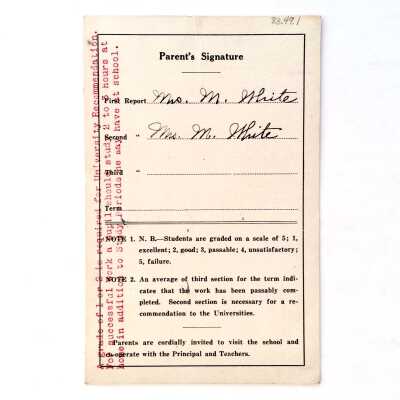 83.49.1
Parent's Signature
First Report Mrs. M. White
Second " Mrs. M. White
Third "
Term
NOTE 1. N. B.—Students are graded on a scale of 5; 1,
excellent; 2, good; 3, passable; 4, unsatisfactory;
5, failure.
NOTE 2. An average of third section for the term indi-
cates that the work has been passably com-
pleted. Second section is necessary for a re-
commendation to the Universities.
Parents are cordially invited to visit the school and
co-operate with the Principal and Teachers.
A grade of 1 or 2 is required for University Recommendation.
For successful work a pupil should study 2 to 3 hours at
home in addition to Study periods he may have at school.